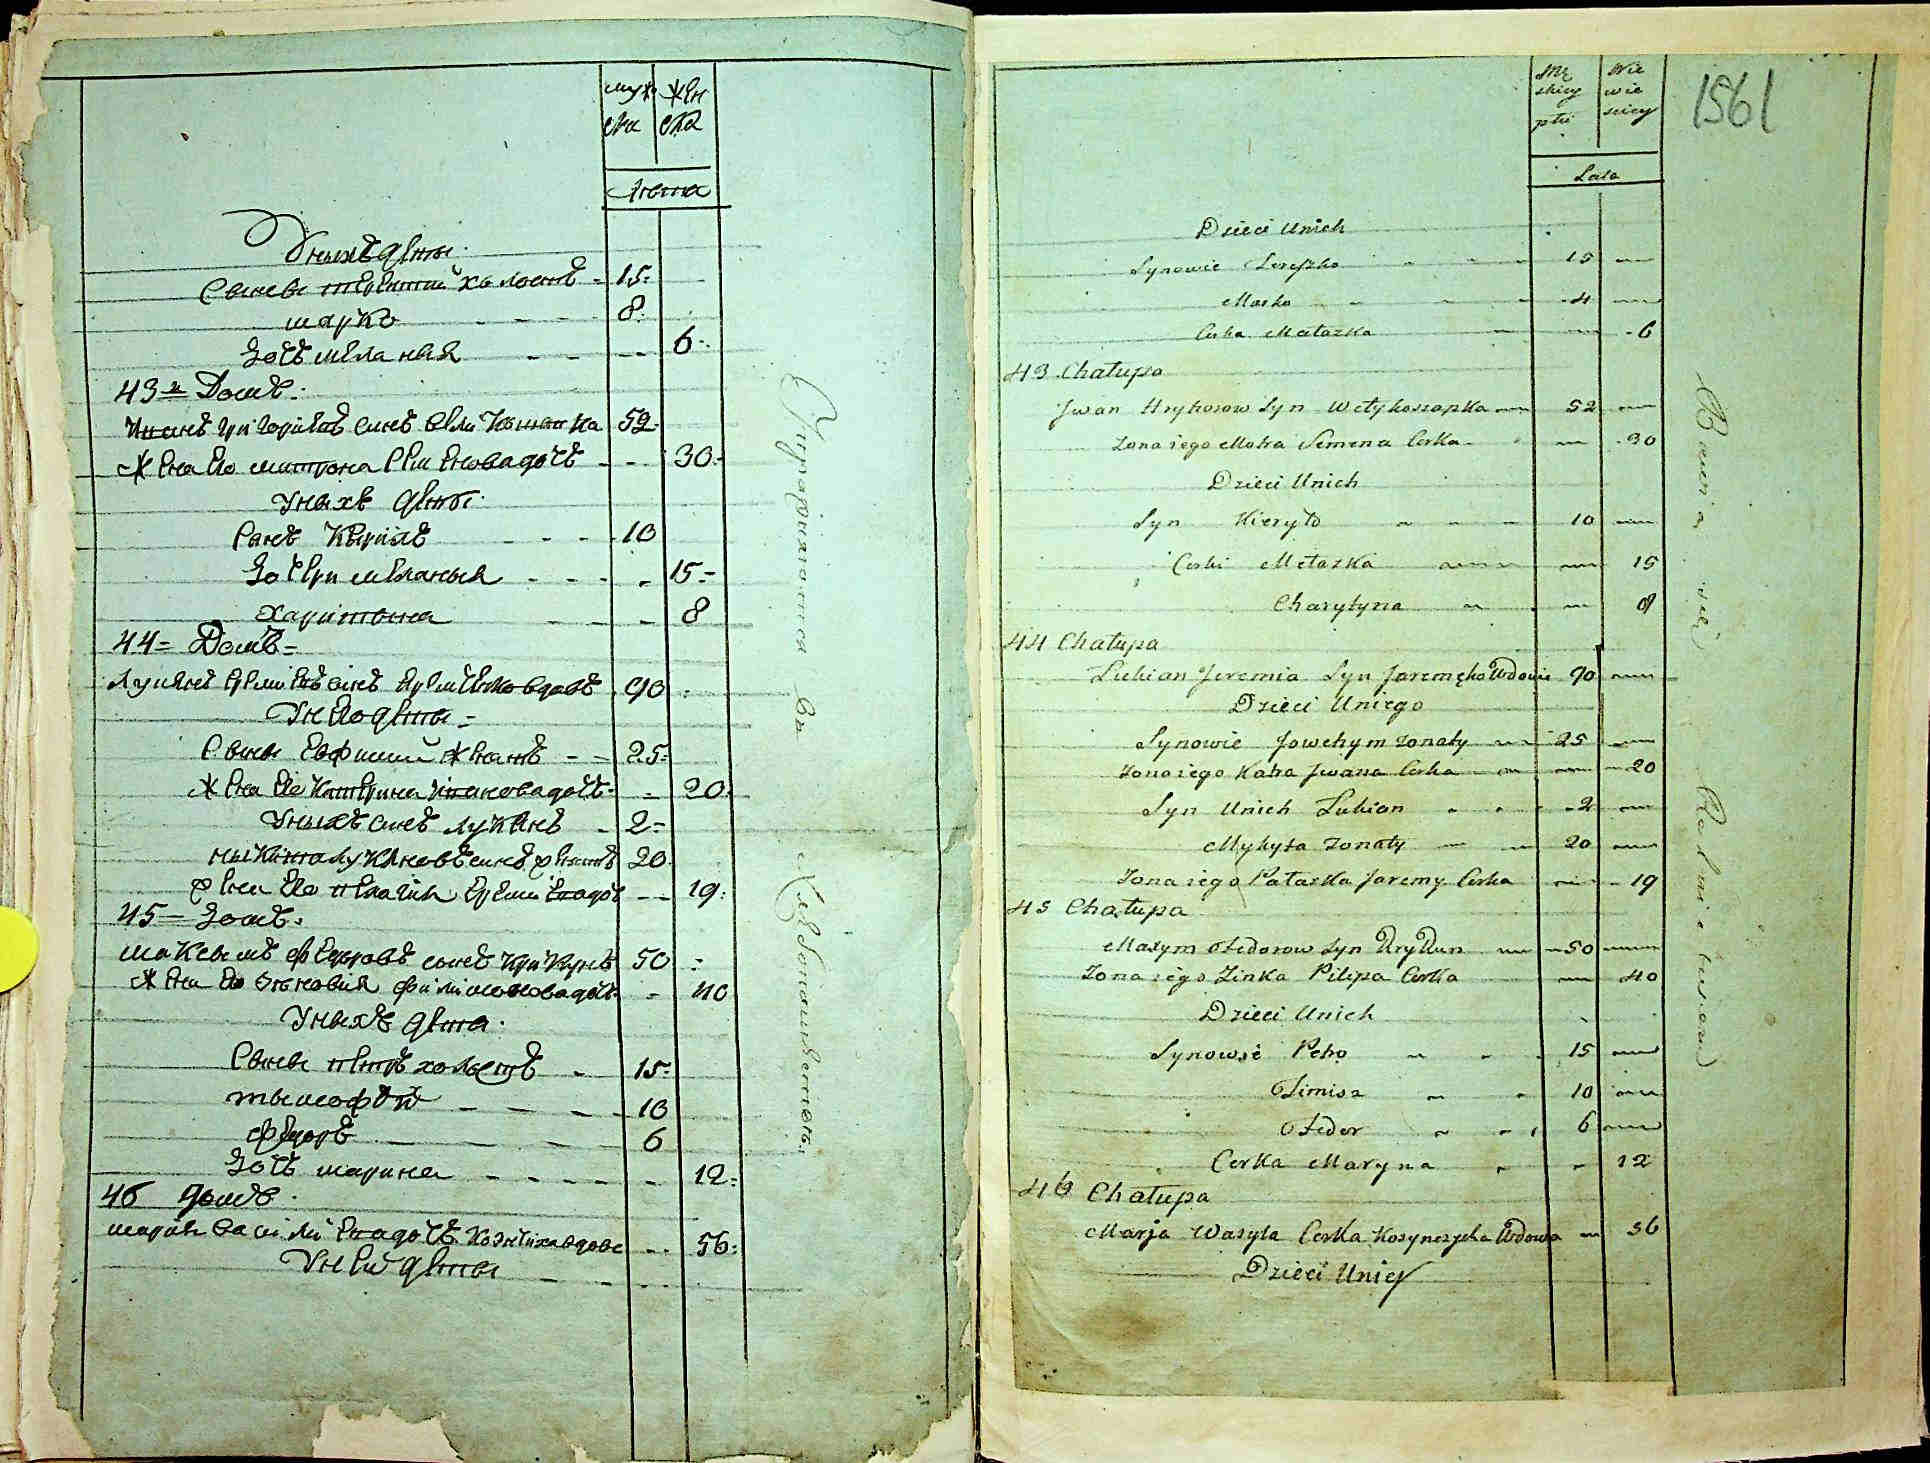 муж ска
жен ска
лета
У них дети
Сынове терентий холостъ - 15
марко 8
дочъ меланья 6
43 Домъ
Иванъ григориевъ синъ вели 52
Жена его митрона семенова дочъ 30
У нихъ дети
Синъ Кирилъ 10
дочери меланья 15
харитына 8
44 Домъ
Лукянъ еремиевъ синъ вдовъ 90
У него дети
Сыны евфимий женатъ 25
Жена его Катерина иванова дочъ 20
У нихъ синъ лукянъ 2
никита лукяновъ синъ женатъ 20
жена его пелагия дочъ 19
45 домъ
максымъ федоровъ сынъ крикунъ 50
Жена его зѣновия филимонова дочъ 40
У нихъ дети
Сыны петръ холостъ 15
тымофей 10
федоръ 6
дочъ марина 12
46 домъ
мария василиева дочъ вдова 56
У ней дети
Męskiey płci
Niewieściey
Lata
1561
Dzieci Unich
Synowie Tereszko 15
Marko 4
Corka Małazka 6
43 Chałupa
Jwan Hryhorow Syn 52
Zona iego Motra Semena Corka 30
Dzieci Unich
Syn Kieryło 10
Corki Mełazka 15
Charytyna 8
44 Chałupa
Lukian Jeremia Syn Wdowiec 90
Dzieci Uniego
Synowie Jowchym zonaty 25
Zona iego Katra Jwana Corka 20
Syn Unich Lukian 2
Mykyta zonaty 20
Zona iego Palaska Jaremy Corka 19
45 Chałupa
Maxym Fedorow Syn KryKun 50
Zona iego Zinka Pilipa Corka 40
Dzieci Unich
Synowie Petro 15
Timisz 10
Fedor 6
Corka Maryna 12
46 Chałupa
Marja Wasyla Corka Wdowa 56
Dzieci Uniey